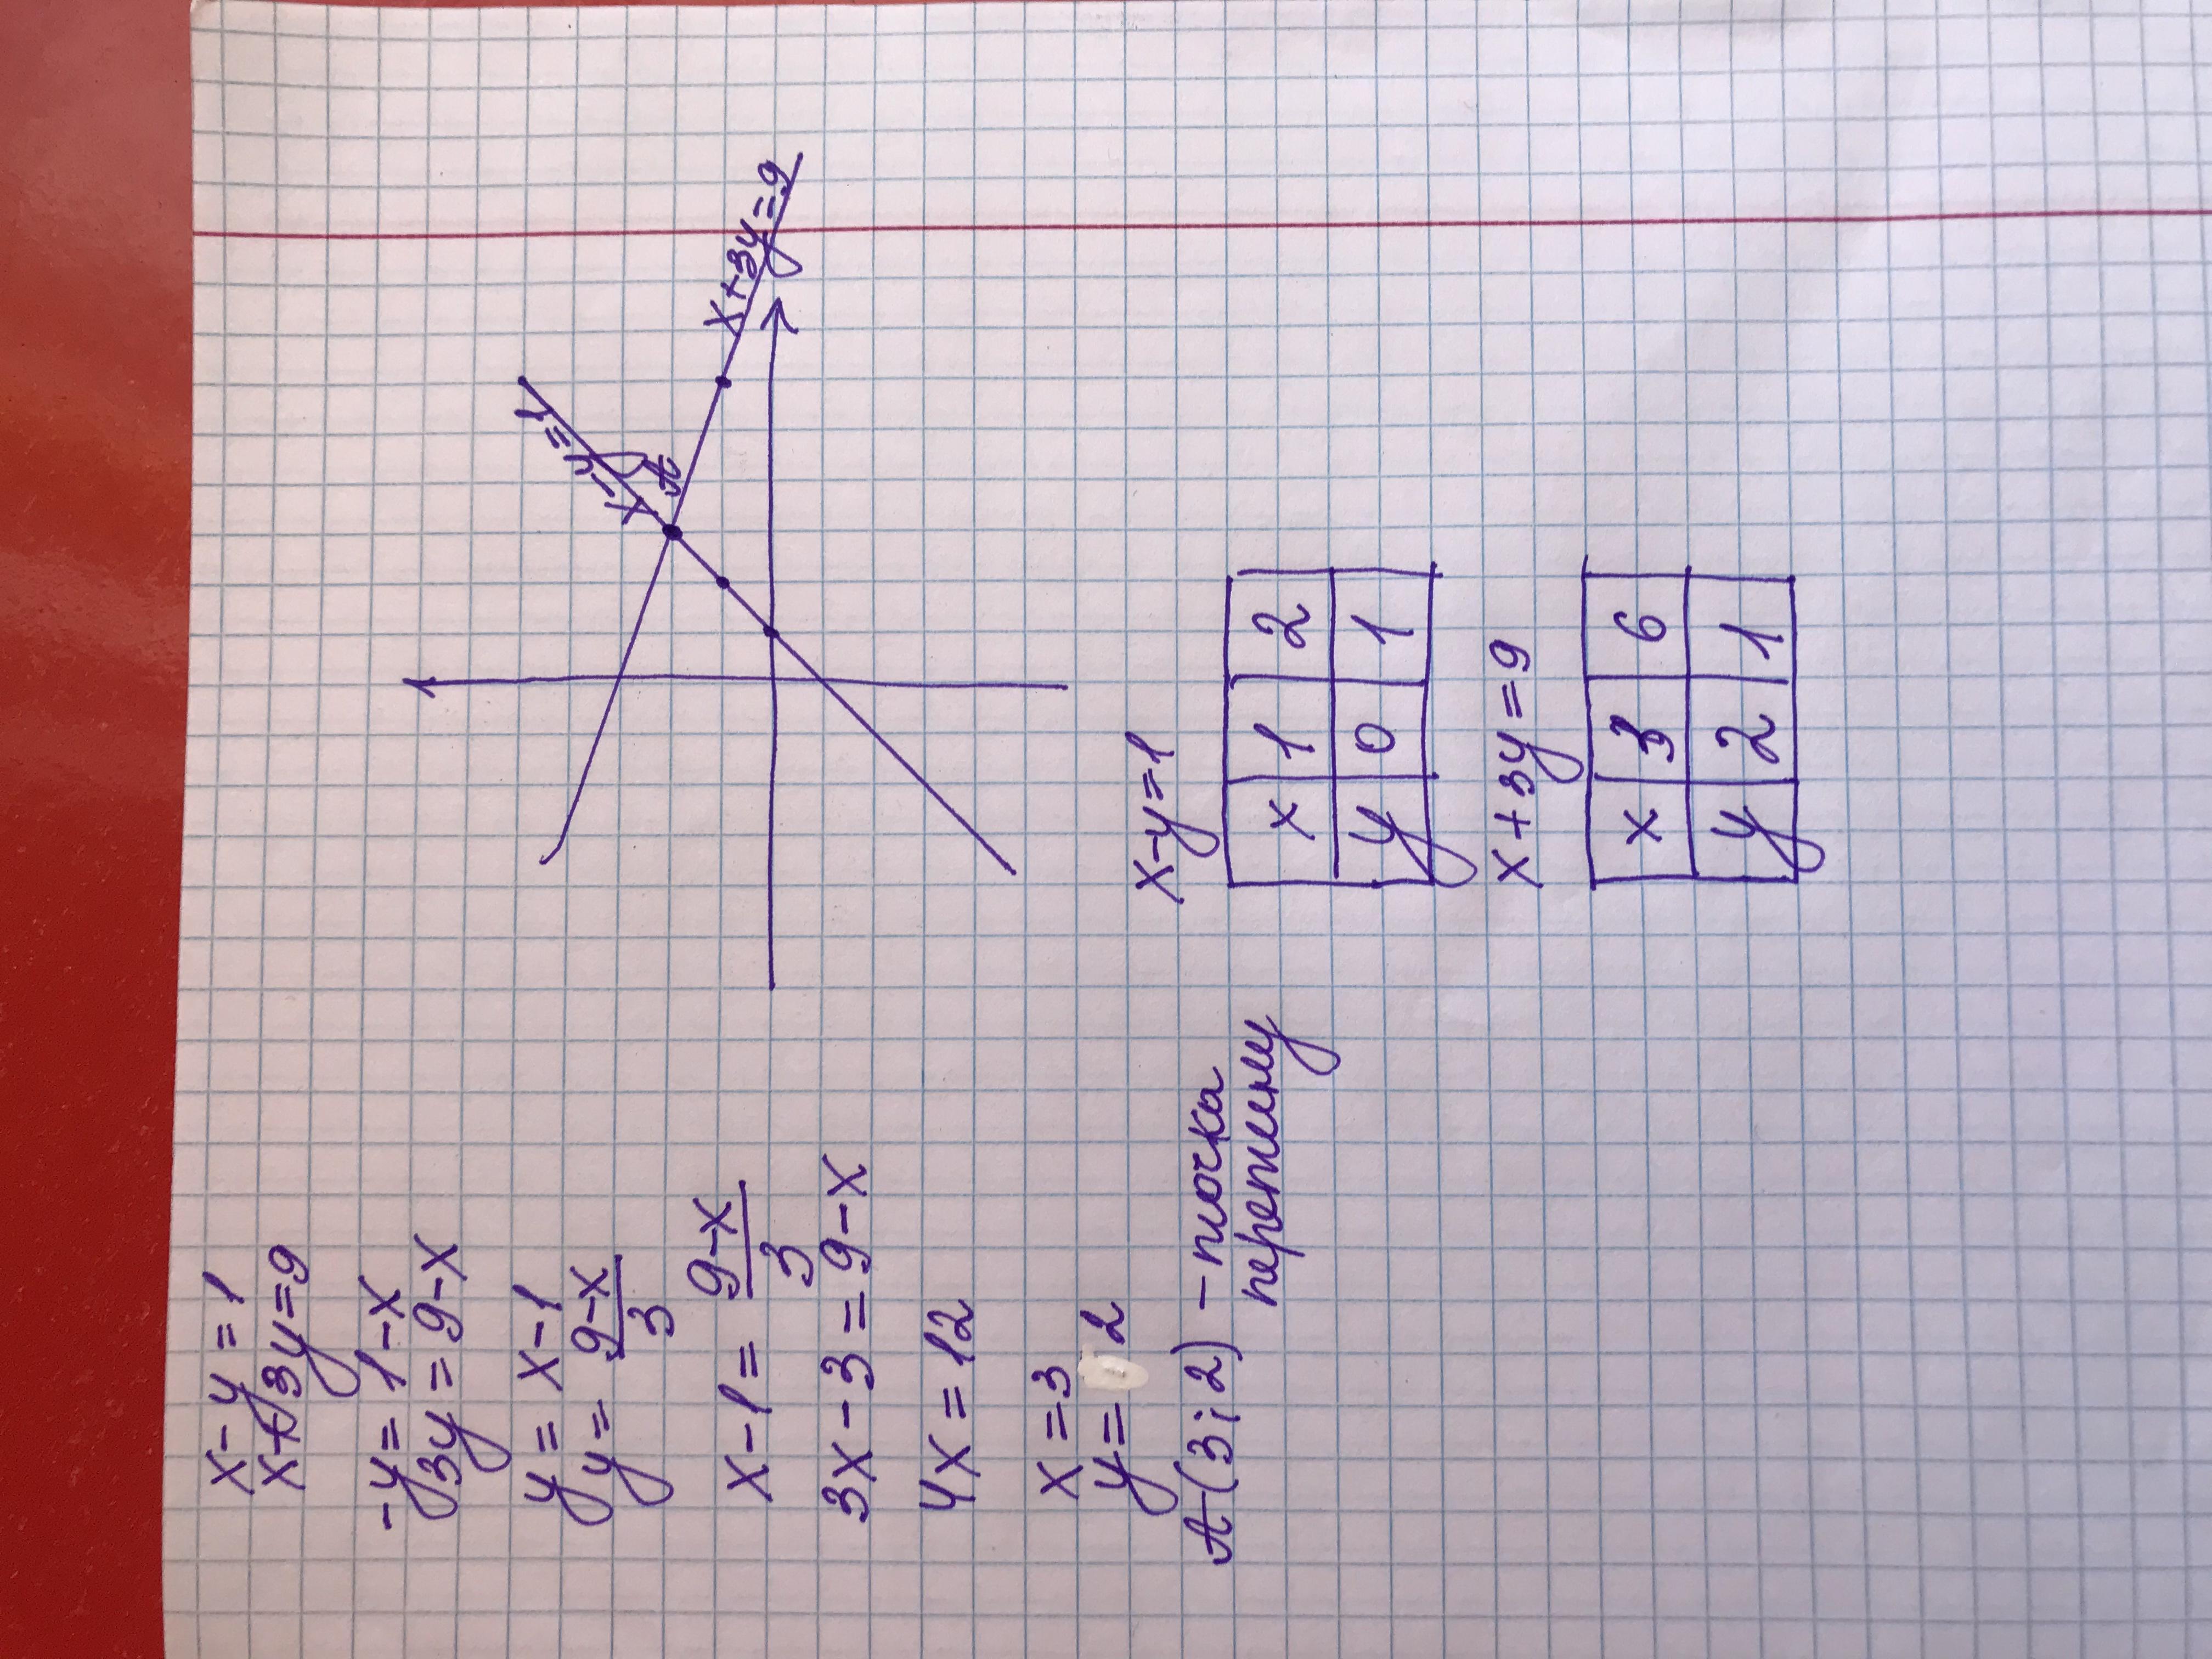 x-y=1
x+3y=9
-y=1-x
3y=9-x
y=x-1
y=9-x
3
x-1=9-x
3
3x-3=9-x
4x=12
x=3
y=2
A(3;2) - точка
перетину
x-y=1
A
x+3y=9
x-y=1
x 1 2
y 0 1
x+3y=9
x 3 6
y 2 1